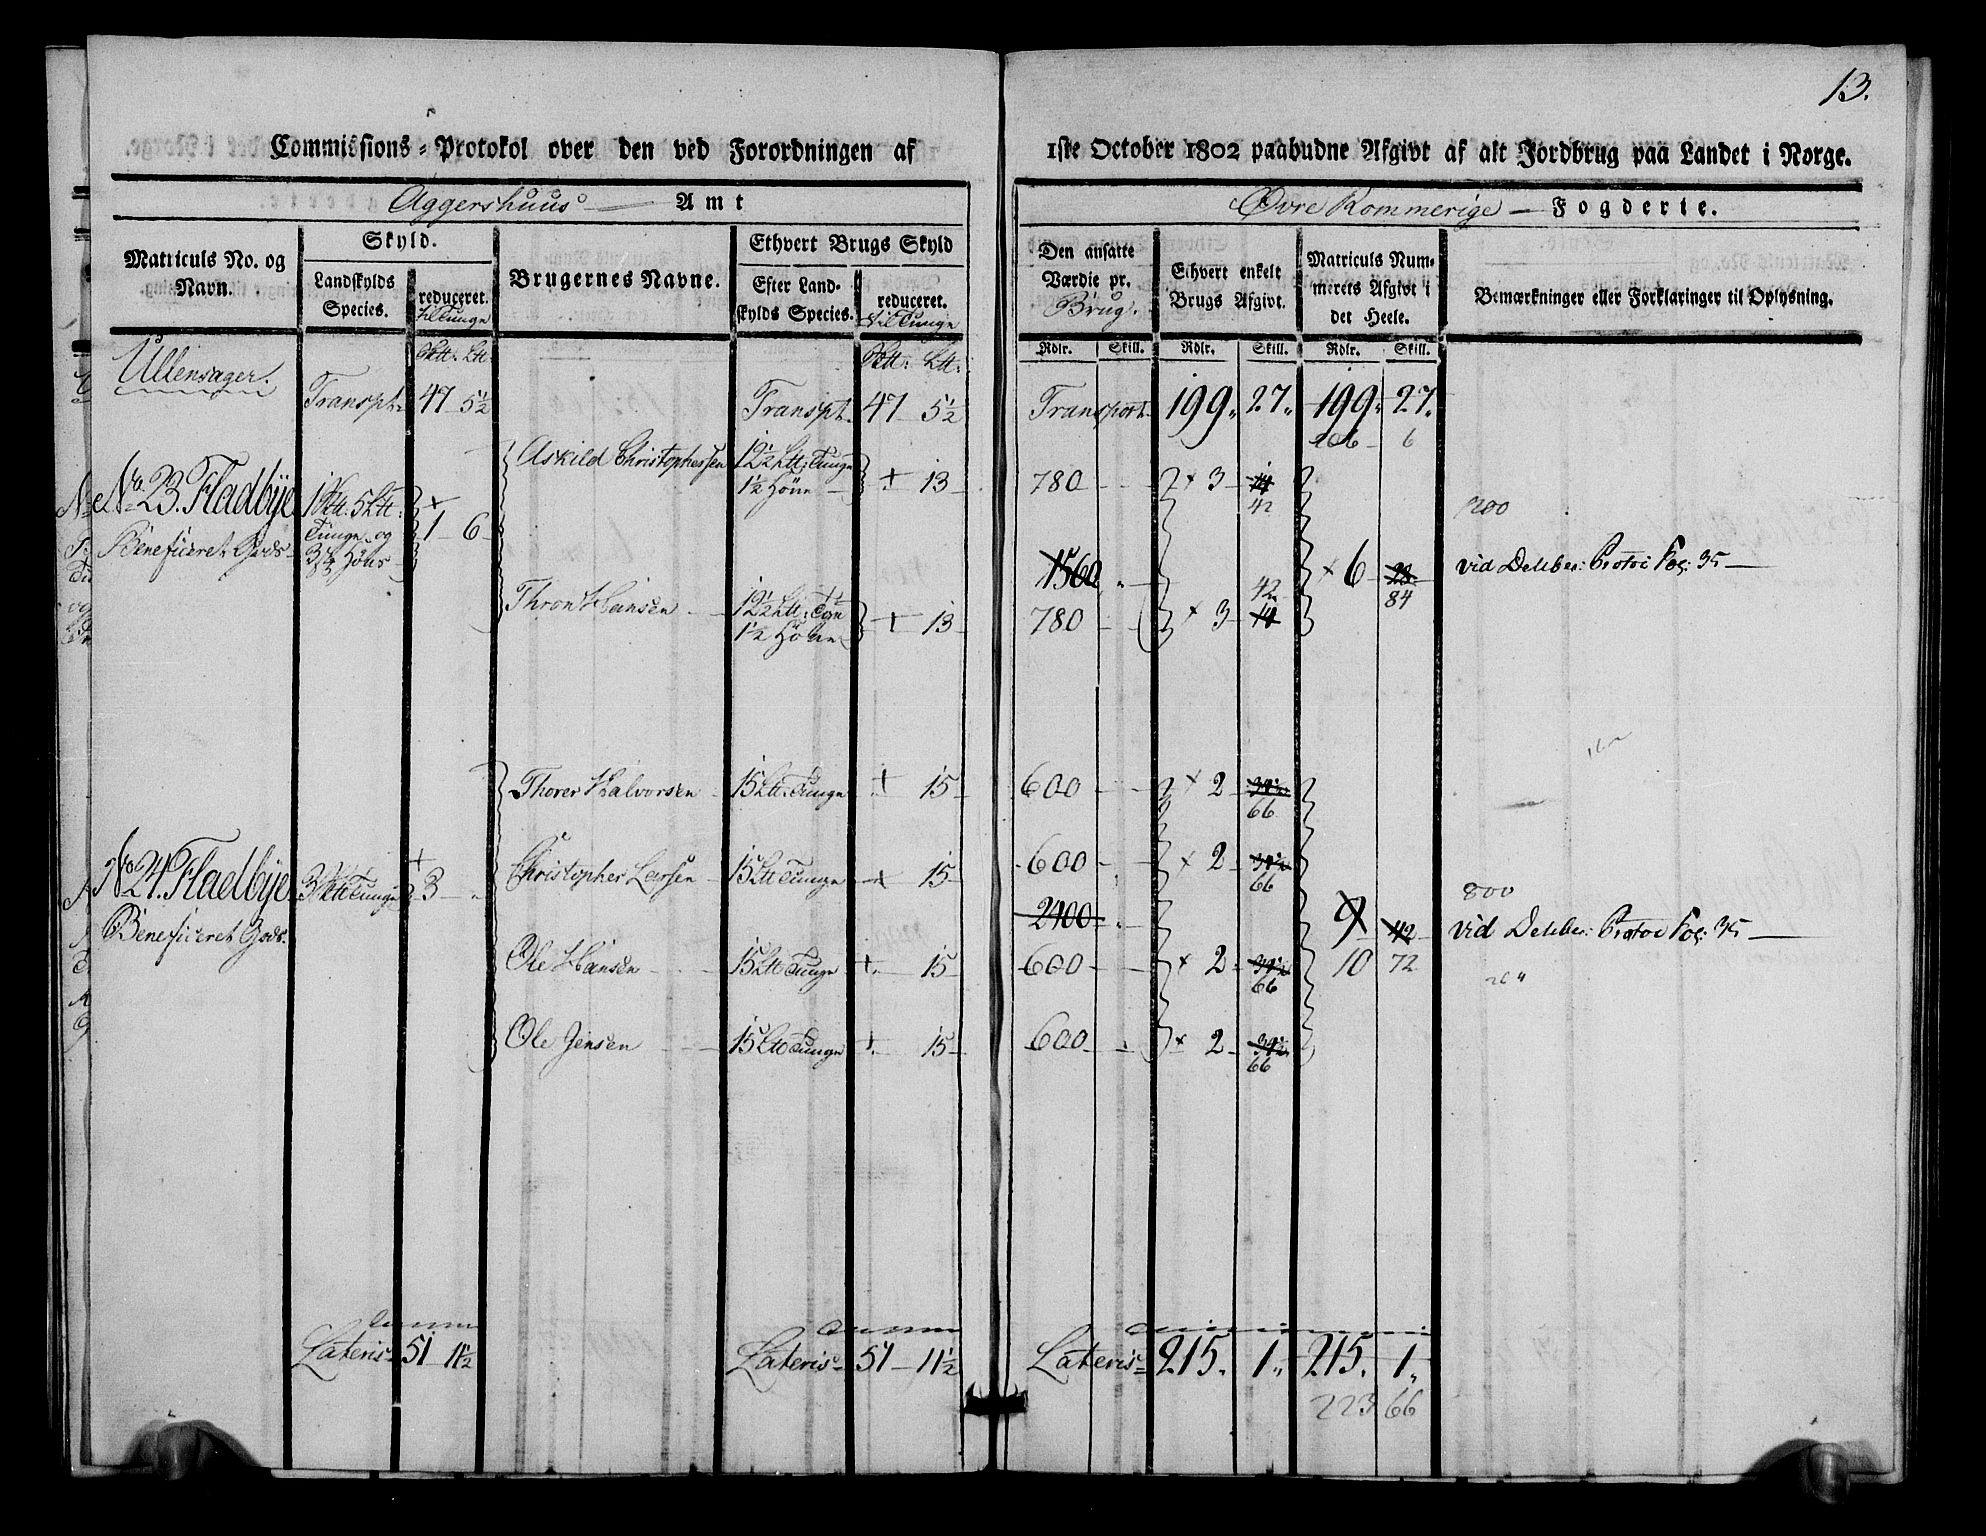 13.
Commissions-Protokol over den ved Forordningen af 1ste October 1802 paabudne Afgivt af alt Jordbrug paa Landet i Norge.
Aggershuus Amt
Øvre Rommerige Fogderie.
Matriculs No. og Navn.
Skyld.
Landskylds Species.
reduceret. til Tunge
Brugernes Navne.
Ethvert Brugs Skyld
Efter Landskylds Species.
reduceret. til Tunge
Den ansatte Værdie pr. Brug.
Ethvert enkelt Brugs Afgivt.
Matriculs Nummerets Afgivt i det Heele.
Bemærkninger eller Forklaringer til Oplysning.
Rdlr. Skill. Rdlr. Skill. Rdlr. Skill.
Ullensager.
Transpt. 47 5½ Transpt. 47 5½ Transport 199 27 199 27
206 6
Askild Christophersen 12½ Ltt: Tunge 1½ Höne + 13 780 × 3 14 42
No 23. Fladbÿe 1 Sktt: 5 Ltt: Tunge og 3 Höns + 1 6
Beneficeret Gods
1560 × 6 28 84
700
vid Deliber: Protoc Fol: 35
Thron Hansen 12½ Ltt: Tge 1½ Höne + 13 780 × 3 42 14
Thorer Halvorsen 15 Ltt: Tunge + 15 600 × 2 34½ 66
No 24. Fladbÿe 3 Sktt Tunge + 3
Beneficeret Gods.
Christopher Larsen 15 Ltt Tunge + 15 600 × 2 34½ 66
2400 9 42
800
vid Deliber: Protoc Fol: 35
Ole Hansen 15 Ltt Tunge + 15 600 × 2 34½ 66 10 72
Ole Jensen 15 Ltt Tunge + 15 600 × 2 34½ 66
Lateris 51 11½ Lateris 51 11½ Lateris 215. 1 215. 1
223 66